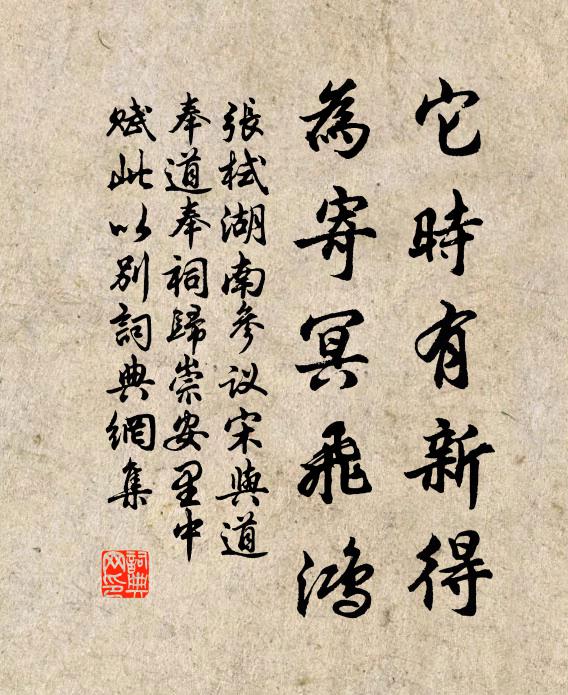 它時有新得
為寄冥飛鴻
張栻湖南參议宋與道
奉道奉祠歸崇安里中
賦此以别詞典網集
詞典
网印